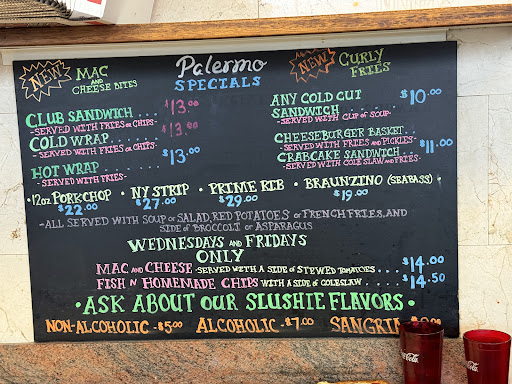 NEW MAC AND CHEESE BITES
Palermo SPECIALS
NEW CURLY FRIES
CLUB SANDWICH .... $13.00
-SERVED WITH FRIES OR CHIPS-
COLD WRAP .... $13.00
-SERVED WITH FRIES OR CHIPS
HOT WRAP .... $13.00
-SERVED WITH FRIES-
ANY COLD CUT SANDWICH .... $10.00
-SERVED WITH CUP OF SOUP-
CHEESEBURGER BASKET..
-SERVED WITH FRIES AND PICKLES-
CRABCAKE SANDWICH .. $11.00
-SERVED WITH COLE SLAW AND FRIES-
• 12oz PORKCHOP $22.00 • NY STRIP $27.00 • PRIME RIB $29.00 • BRAUNZINO (SEABASS) $19.00
-ALL SERVED WITH SOUP OR SALAD, RED POTATOES OR FRENCH FRIES, AND
SIDE OF BROCCOLI OR ASPARAGUS
WEDNESDAYS AND FRIDAYS
ONLY
MAC AND CHEESE -SERVED WITH A SIDE OF STEWED TOMATOES .... $14.00
FISH N HOMEMADE CHIPS WITH A SIDE OF COLESLAW .... $14.50
• ASK ABOUT OUR SLUSHIE FLAVORS •
NON-ALCOHOLIC - $5.00 ALCOHOLIC - $7.00 SANGRIA
Coca-Cola
Coca-Cola